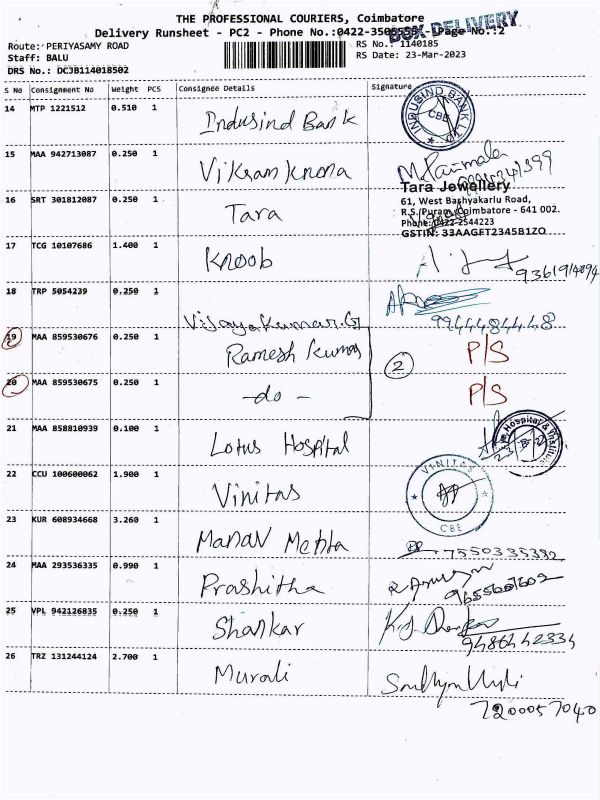 THE PROFESSIONAL COURIERS, Coimbatore
BOX-DELIVERY
Delivery Runsheet - PC2 - Phone No.:0422- Page No.:2
Route: PERIYASAMY ROAD RS No.: 1140185
Staff: BALU RS Date: 23-Mar-2023
DRS No.: DCJB114018502
S No Consignment No Weight PCS Consignee Details Signature
14 MTP 1221512 0.510 1 Indusind Bank INDUSIND BANK LTD CBE
15 MAA 942713087 0.250 1 Vikram Knona
Tara Jewellery
61, West Bashyakarlu Road,
16 SRT 301812087 0.250 1 Tara R.S.Puram, Coimbatore - 641 002.
Phone: 0422-2544223
GSTIN: 33AAGFT2345B1ZO
17 TCG 10107686 1.400 1 Knoob
18 TRP 5054239 0.250 1 Vijayakumar.G 9944484448
19 MAA 859530676 0.250 1 Ramesh Kumar 2 P/S
20 MAA 859530675 0.250 1 -do- P/S
21 MAA 858810939 0.100 1 Lotus Hospital Hospital &
22 CCU 100600062 1.900 1 Vinitas VINITAS CBE
23 KUR 608934668 3.260 1 Manav Mehta 7550335382
24 MAA 293536335 0.990 1 Prashitha
25 VPL 942126835 0.250 1 Shankar 9486442334
26 TRZ 131244124 2.700 1 Murali
7200057040